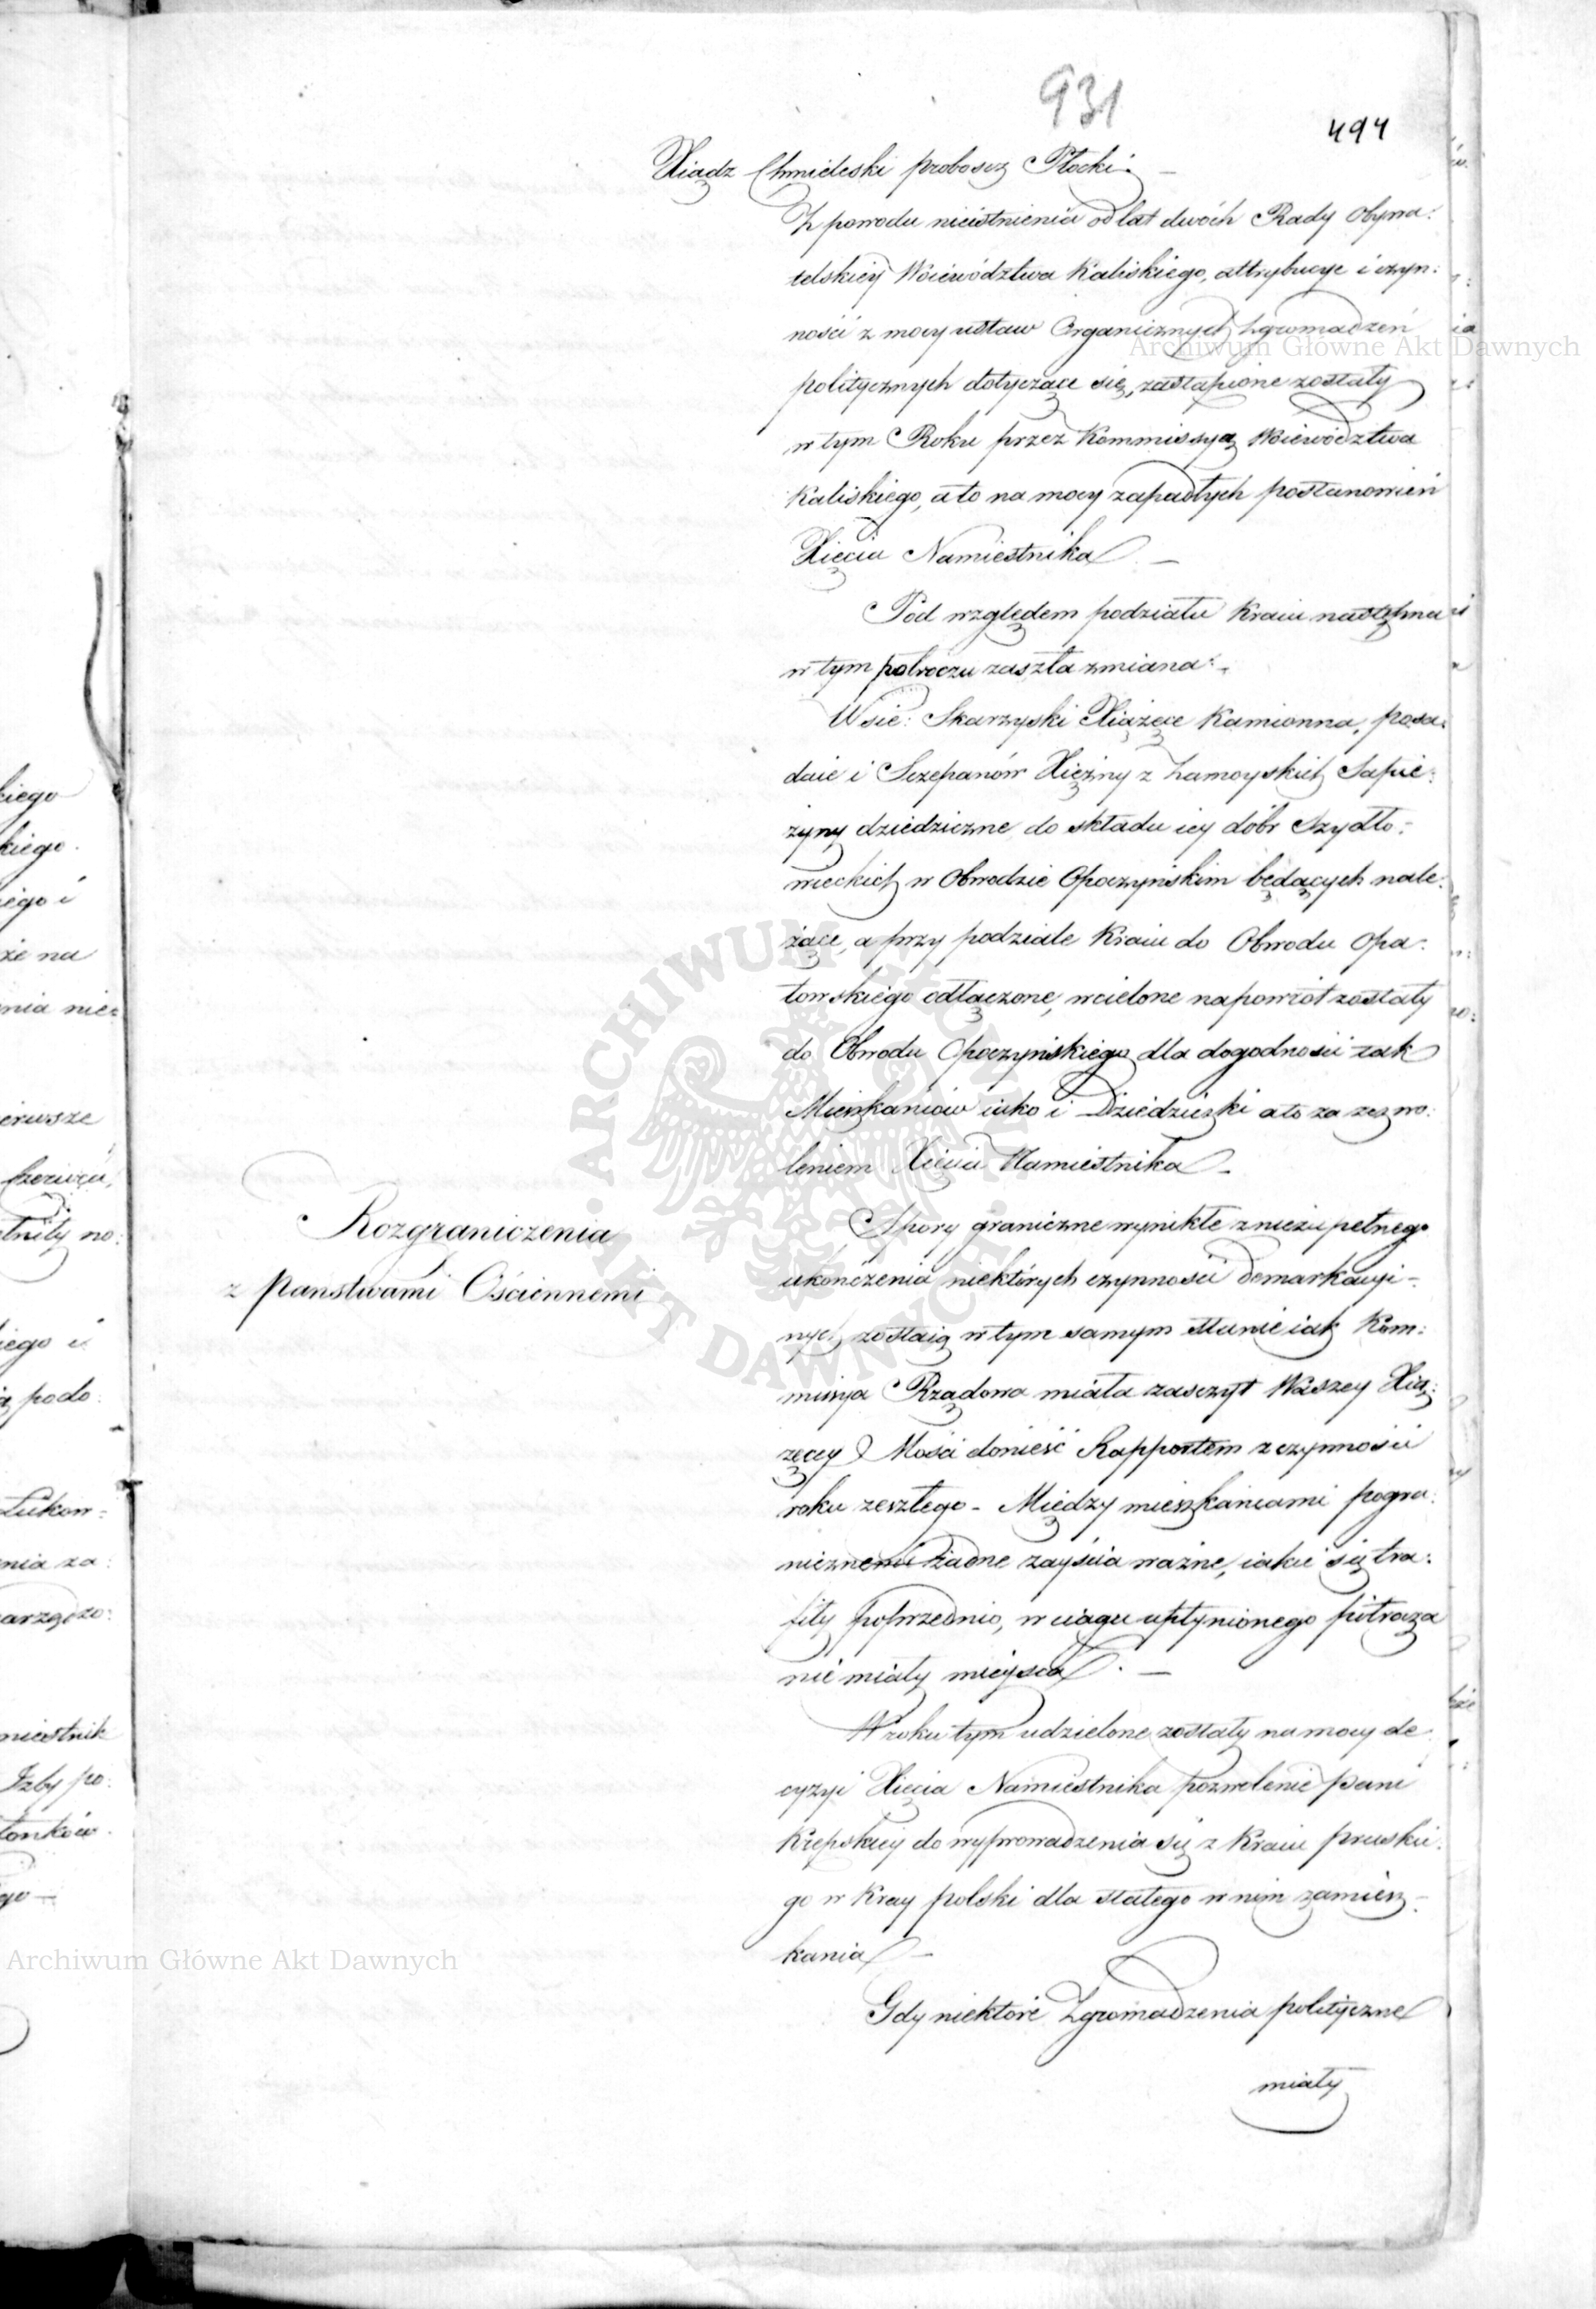 931
494
Xiądz Chmieleski proboscz Płocki:
Z powodu nieistnienia od lat dwóch Rady Obywa:
telskiey Woiewództwa Kaliskiego, attrybucye i czyn:
ności z mocy ustaw Organicznych Zgromadzeń
Archiwum Główne Akt Dawnych
politycznych dotyczące się, zastąpione zostały
w tym Roku przez Kommissyą Woiewództwa
Kaliskiego, a to na mocy zapadłych postanowień
Xięcia Namiestnika. —
Pod względem podziału Kraiu następna
w tym półroczu zaszła zmiana:
Wsie: Skarzyski Xiążęce Kamionna, posa:
daie i Sczepanów Xiężny z Zamoyskich Sapie:
żyny dziedziczne do składu iey dóbr Szydło:
wieckich w Obwodzie Opoczyńskim będących nale:
żące, a przy podziale Kraiu do Obwodu Opa:
towskiego odłączone, wcielone napowrót zostały
do Obwodu Opoczyńskiego dla dogodności tak
Mieszkańców iako i Dziedziczki a to za zezwo:
leniem Xięcia Namiestnika —
Rozgraniczenia
z Panstwami Ościennemi
Spory graniczne wynikłe z niezupełnego
ukończenia niektórych czynności demarkacyi-
nych zostaią w tym samym stanie iak Kom:
missya Rządowa miała zasczyt Waszey Xią:
żęcey Mości donieść Rapportem z czynności
roku zeszłego - Między mieszkańcami pogra:
nicznemi żadne zayścia ważne, iakie się tra:
fiły poprzednio, w ciągu upłynionego półrocza
nie miały mieysca. —
W roku tym udzielone zostały na mocy de
cyzyi Xięcia Namiestnika pozwolenie Pani
Krępskiey do wyprowadzenia się z Kraiu pruskie:
go w Kray polski dla stałego w nim zamiesz-
kania —
Archiwum Główne Akt Dawnych
Gdy niektóre Zgromadzenia polityczne
miały
ARCHIWUM GŁÓWNE AKT DAWNYCH